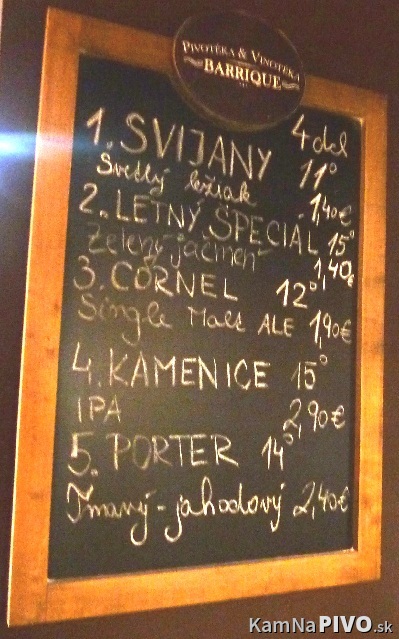 PIVOTÉKA & VINOTÉKA
BARRIQUE
4 dcl
1. SVIJANY 11°
Svetlý ležiak 1,40€
2. LETNÝ ŠPECIÁL 15°
Zelený jačmeň 1,40€
3. CORNEL 12°
Single Malt ALE 1,90€
4. KAMENICE 15°
IPA 2,90€
5. PORTER 14°
Tmavý - jahodový 2,40€
KamNaPIVO.sk